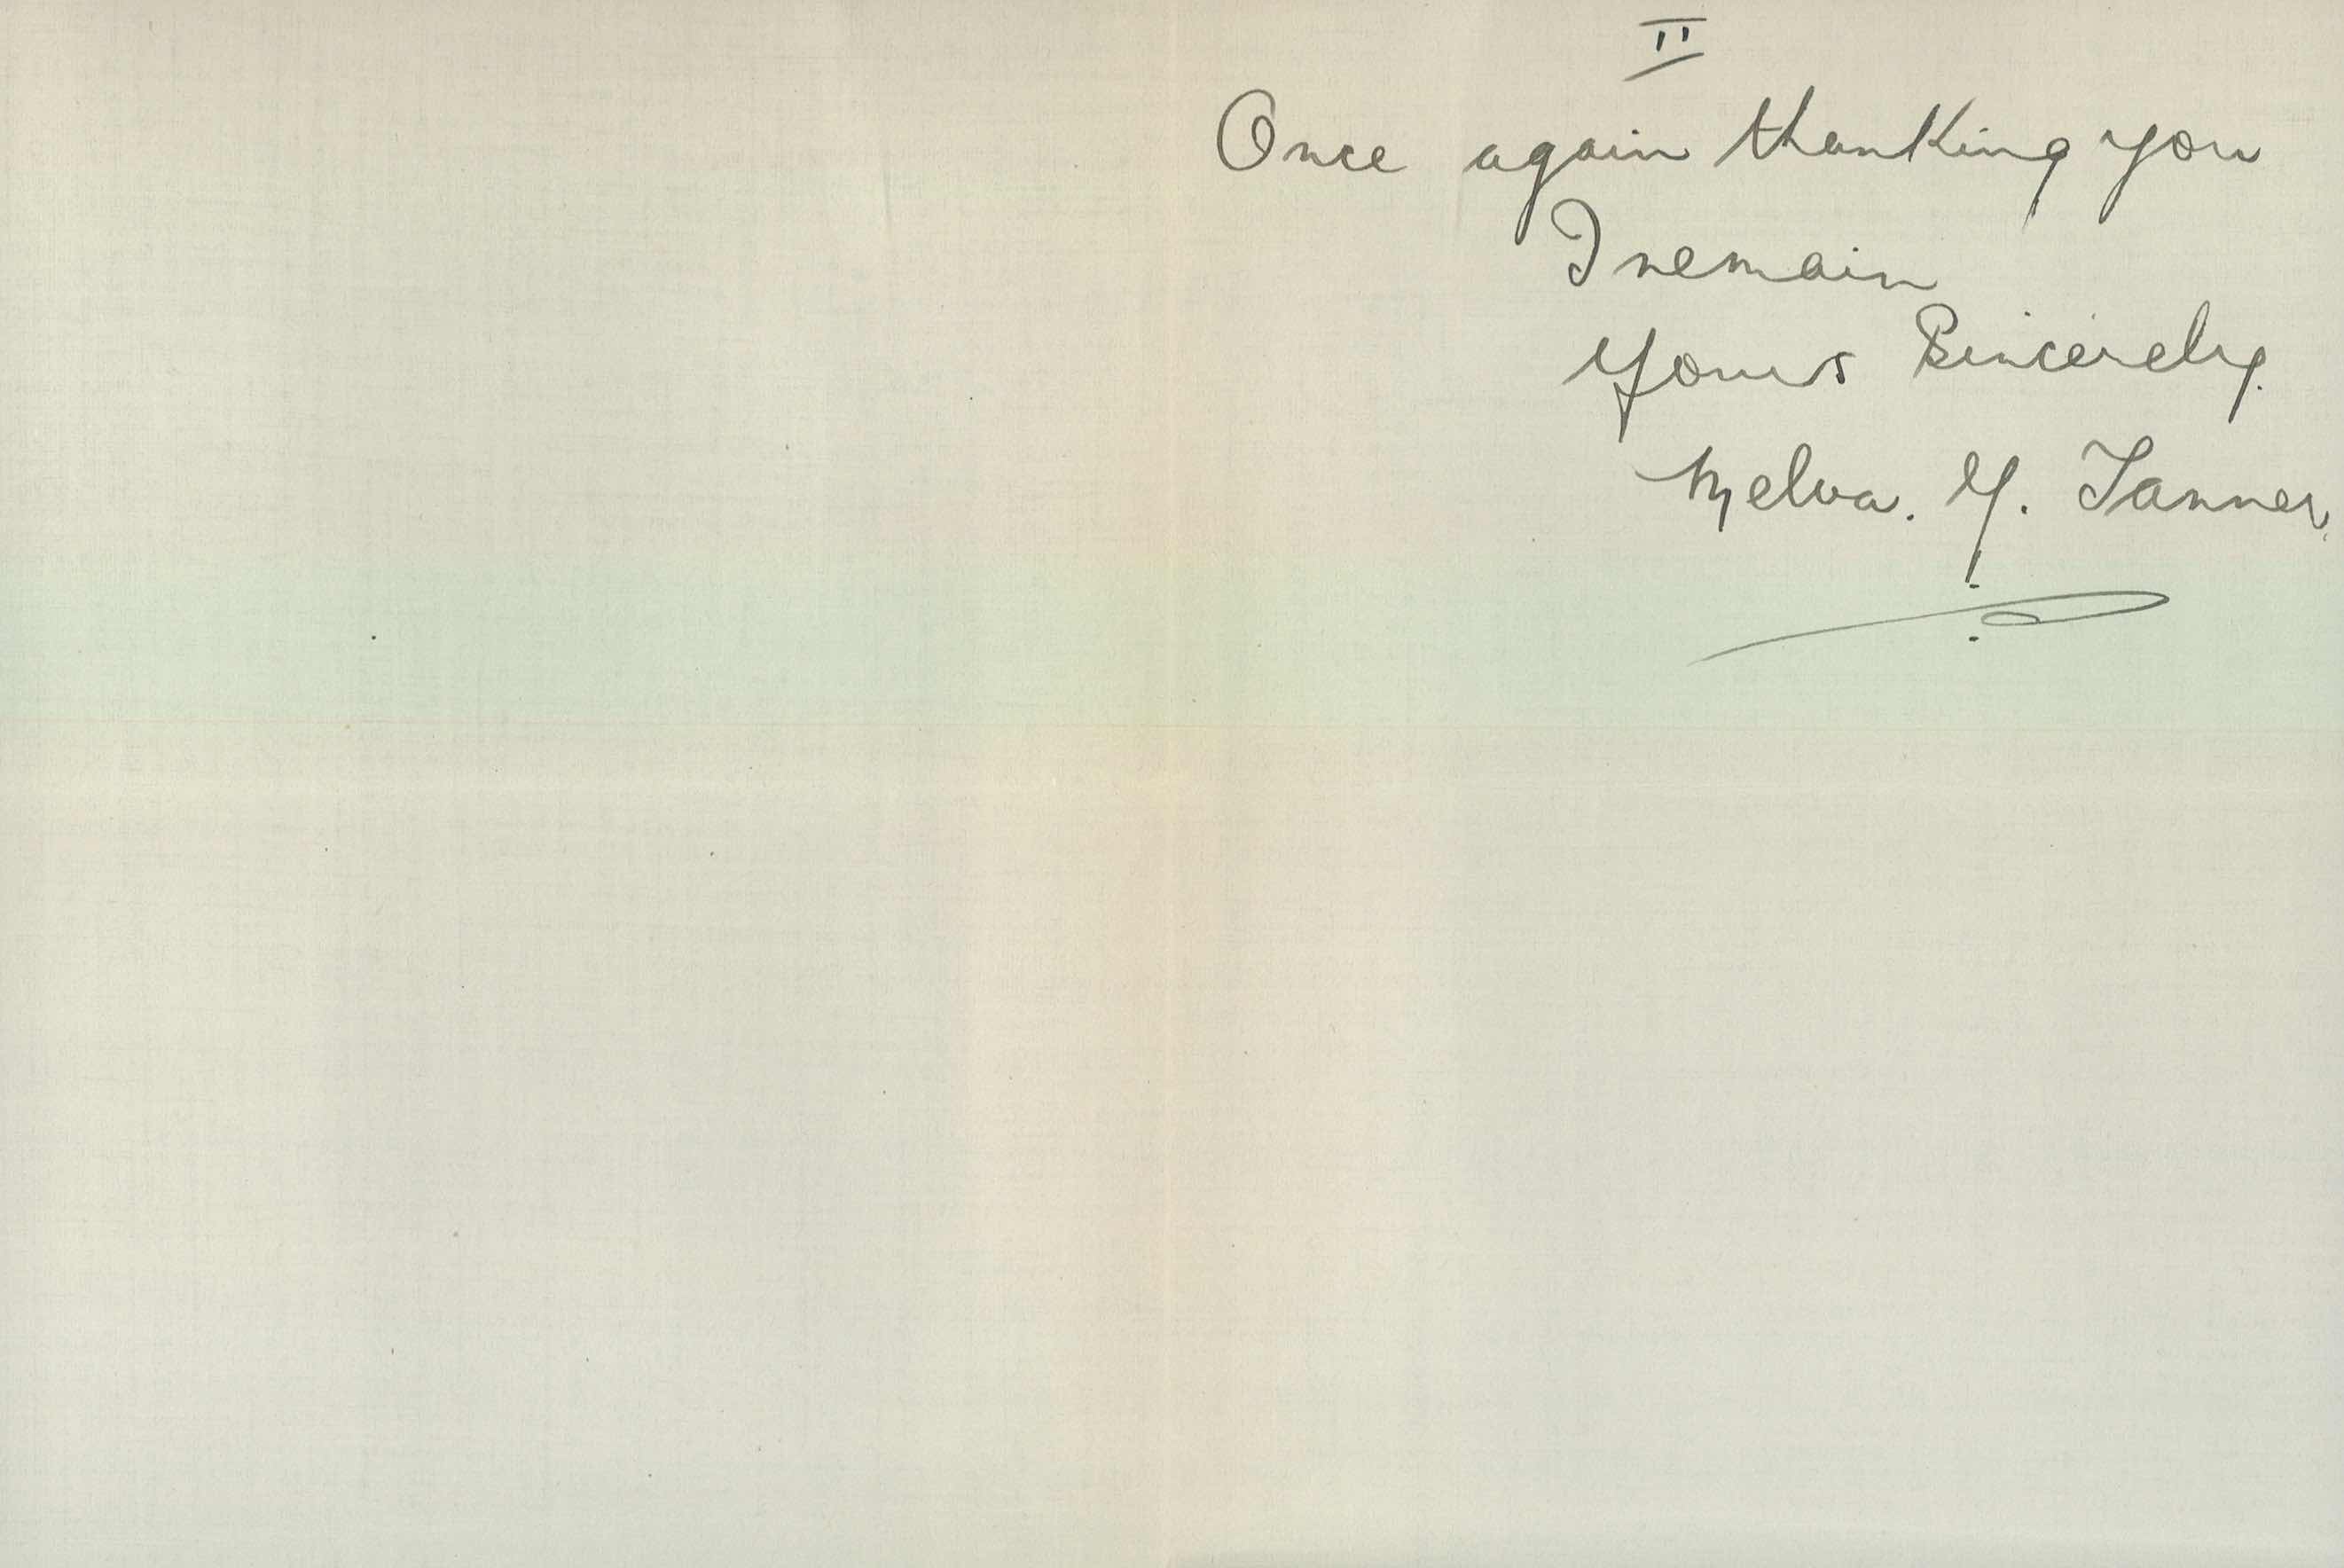 II
Once again thanking you
I remain
Yours Sincerely.
Melva. Y. Tanner.